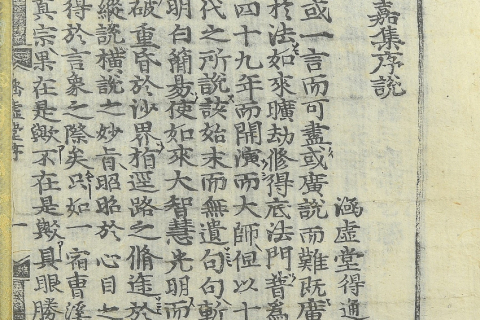 嘉集序說
涵虛堂得通
或一言而可盡或廣說而難旣廣
於法如來曠劫修得底法門普為
四十九年而開演而大師但以十
代之所說該始末而無遺句句斬
明白簡易使如來大智慧光明而
破重昏於沙界指逕路之脩途於
縱說橫說之妙旨昭昭於心目之
得於言象之際矣只如一宿曹溪
真宗果在是歟不在是歟具眼勝
虛堂序 一